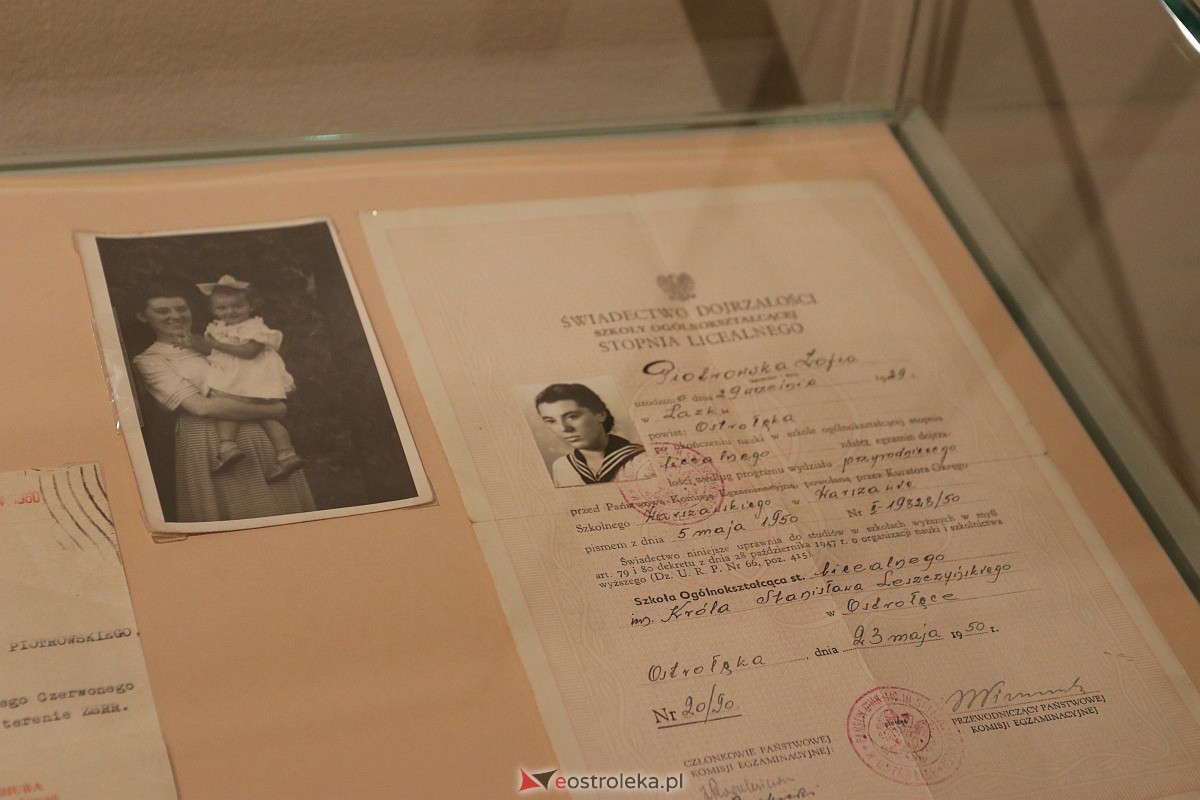 ŚWIADECTWO DOJRZAŁOŚCI
SZKOŁY OGÓLNOKSZTAŁCĄCEJ
STOPNIA LICEALNEGO
Piotrowska Zofia
urodzona dnia 29 września 1929 r.
w Łazku
powiat: Ostrołęka
po ukończeniu nauki w szkole ogólnokształcącej stopnia
licealnego zdała egzamin dojrza-
łości według programu wydziału przyrodniczego
przed Państwową Komisją Egzaminacyjną, powołaną przez Kuratora Okręgu
Szkolnego Warszawskiego w Warszawie
pismem z dnia 5 maja 1950 Nr I-19828/50
Świadectwo niniejsze uprawnia do studiów w szkołach wyższych w myśl
art. 79 i 80 dekretu z dnia 28 października 1947 r. o organizacji nauki i szkolnictwa
wyższego (Dz. U. R. P. Nr 66, poz. 415).
Szkoła Ogólnokształcąca st. licealnego
im. Króla Stanisława Leszczyńskiego
w Ostrołęce
Ostrołęka, dnia 23 maja 1950 r.
Nr 20/50
PRZEWODNICZĄCY PAŃSTWOWEJ
KOMISJI EGZAMINACYJNEJ
CZŁONKOWIE PAŃSTWOWEJ
KOMISJI EGZAMINACYJNEJ:
1960
PIOTROWSKIEGO,
ego Czerwonego
terenie ZSRR.
BIURA
eostroleka.pl